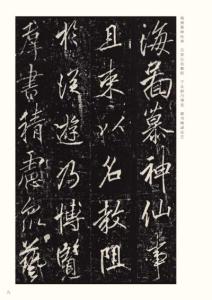 海曷慕神仙事
且束以名教阻
於從遊乃博覽
羣書精慮衆藝